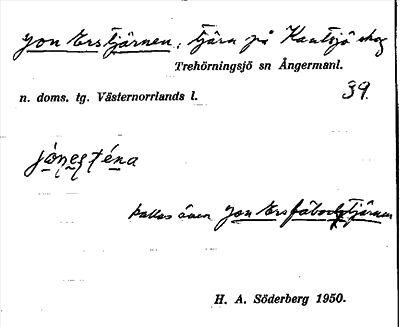 Jon Erstjärnen, tjärn på Kautsjö skog
Trehörningsjö sn Ångermanl.
n. doms. tg. Västernorrlands l. 39.
jónesténa
kallas även Jon Ersfäbodtjärnen
H. A. Söderberg 1950.